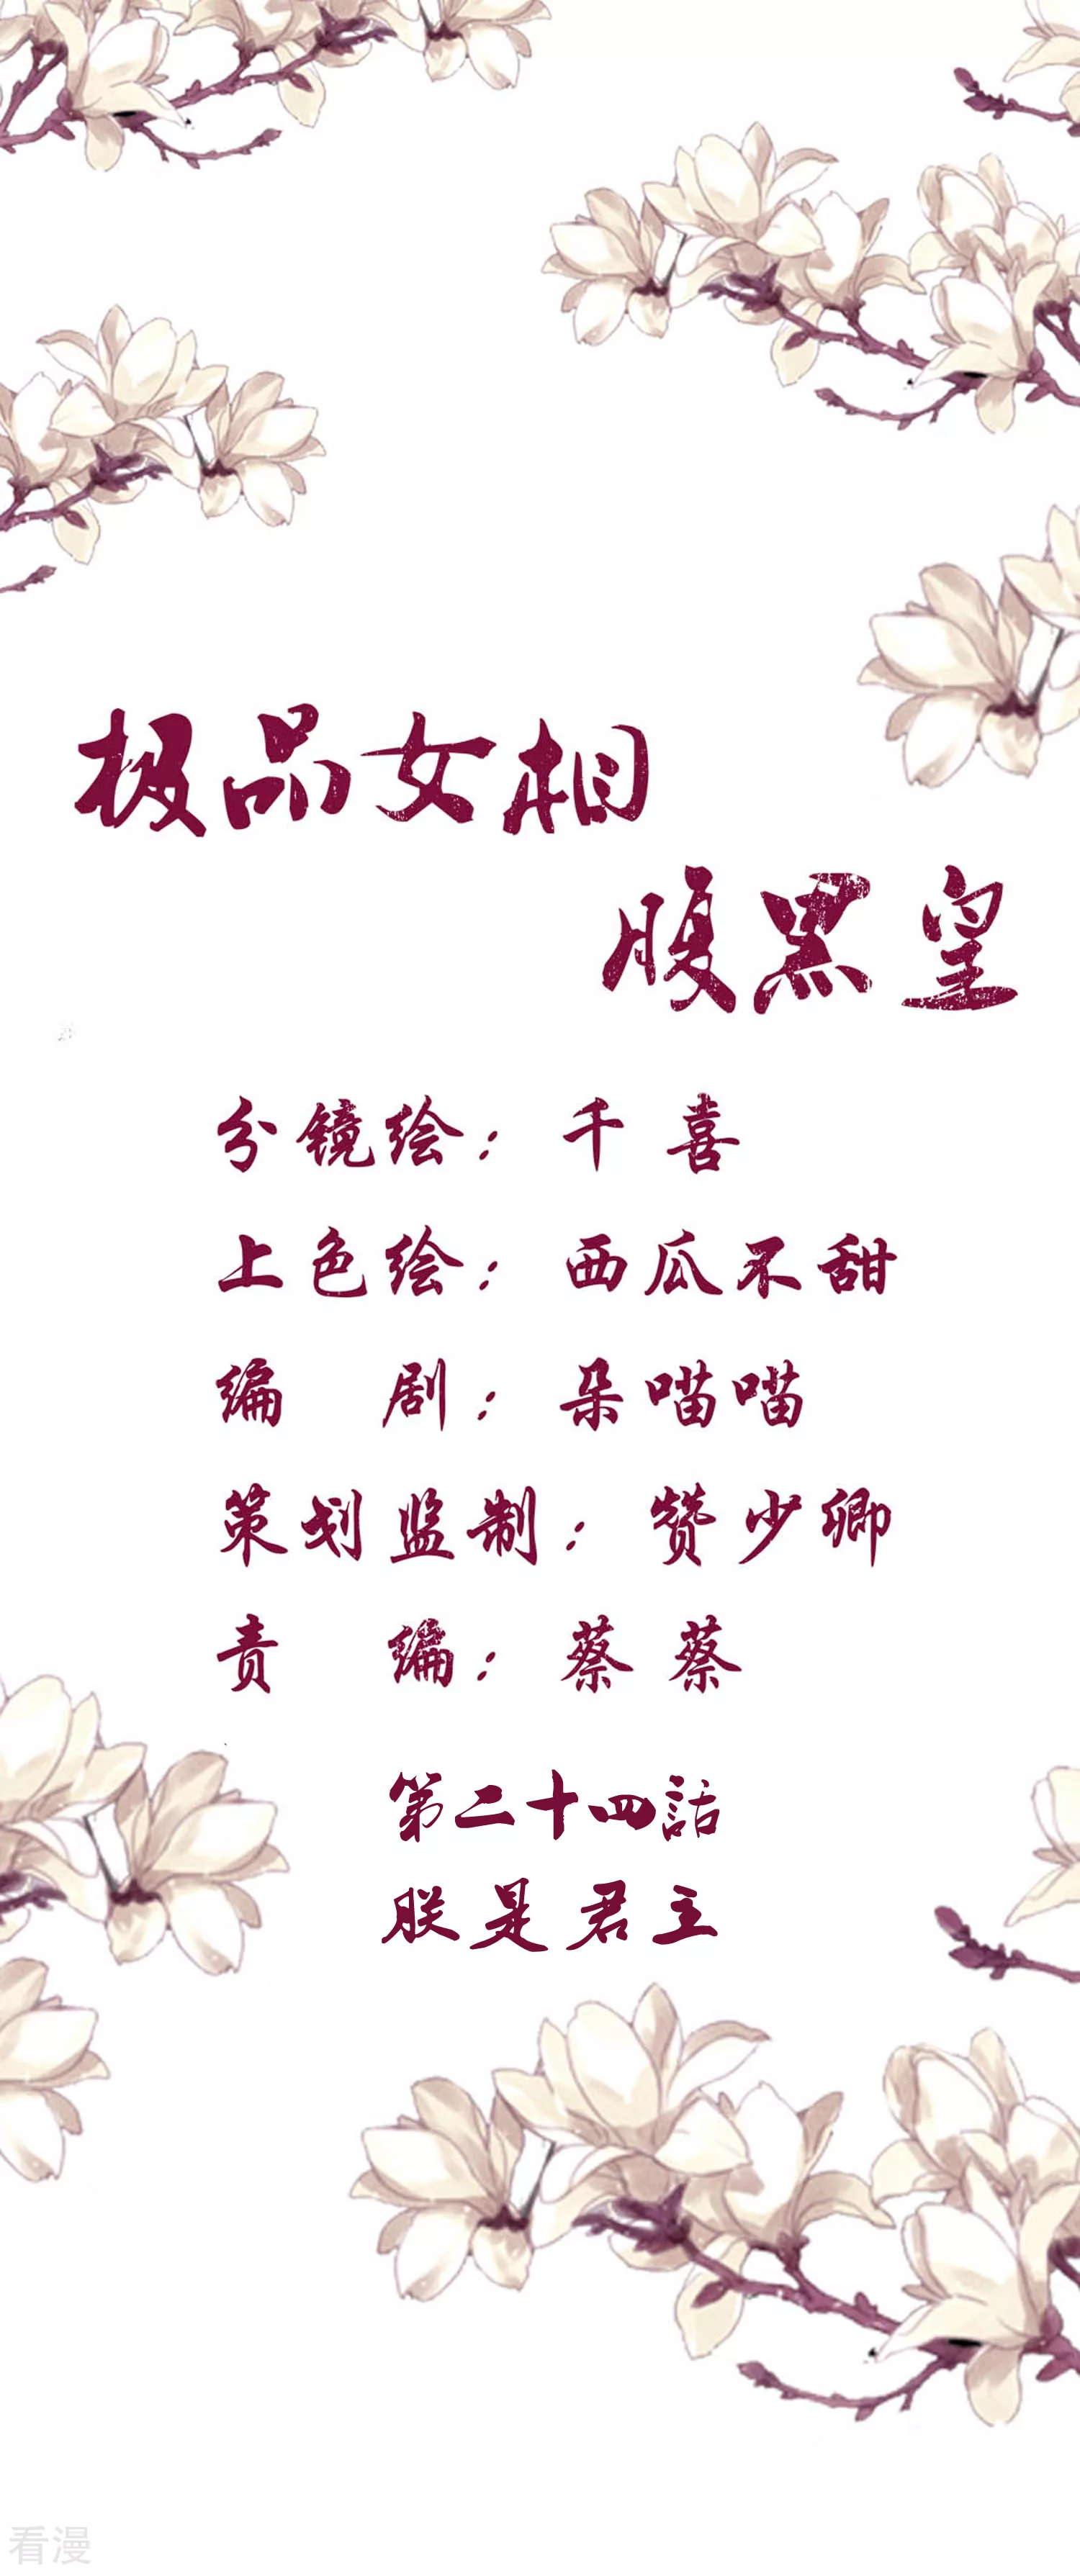 极品女相
腹黑皇
分镜绘：千喜
上色绘：西瓜不甜
编剧：朵喵喵
策划监制：赞少卿
责编：蔡蔡
第二十四話
朕是君主
看漫